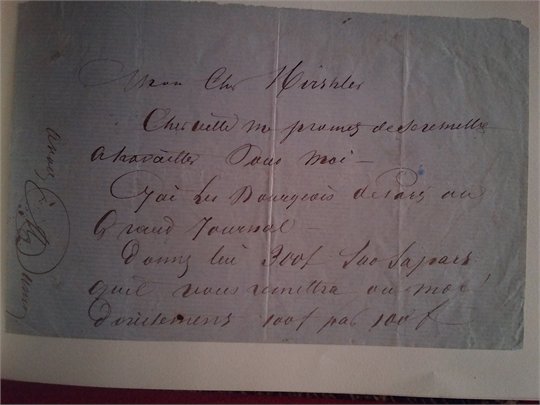 Mon Cher Hirshler
Cherville me promet de se remettre
a travailler Sous moi —
J'ai Les Bourgeois de Paris au
Grand Journal —
Donnez lui 300f
quil vous remettra ou moi
directement 100f par 100f —
a vous